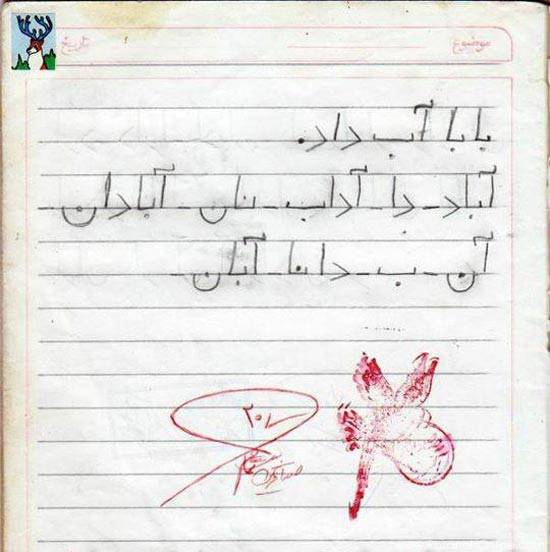 موضوع: تاریخ:
بابا آب داد.
آباد - دا - آداب - نان - آبادان
آن - ب - دانا - آبان -
۲۰